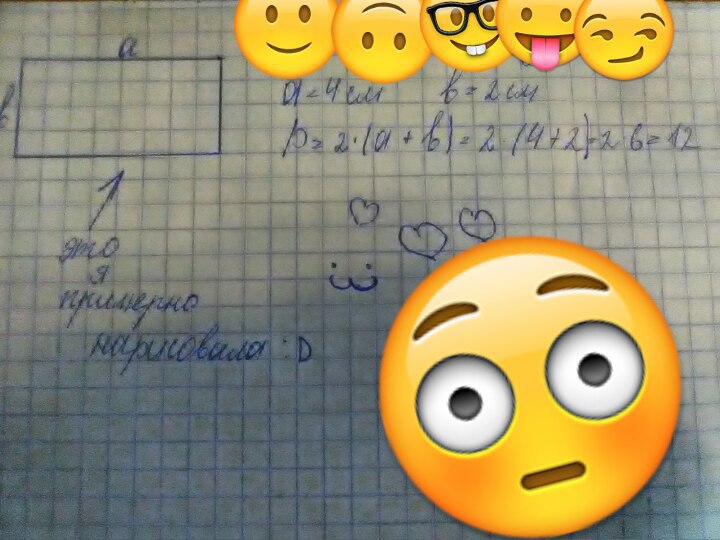 a
в
a = 4 см в = 2 см
P = 2·(a + в) = 2·(4+2)=2·6=12
это
я
примерно
нарисовала :D